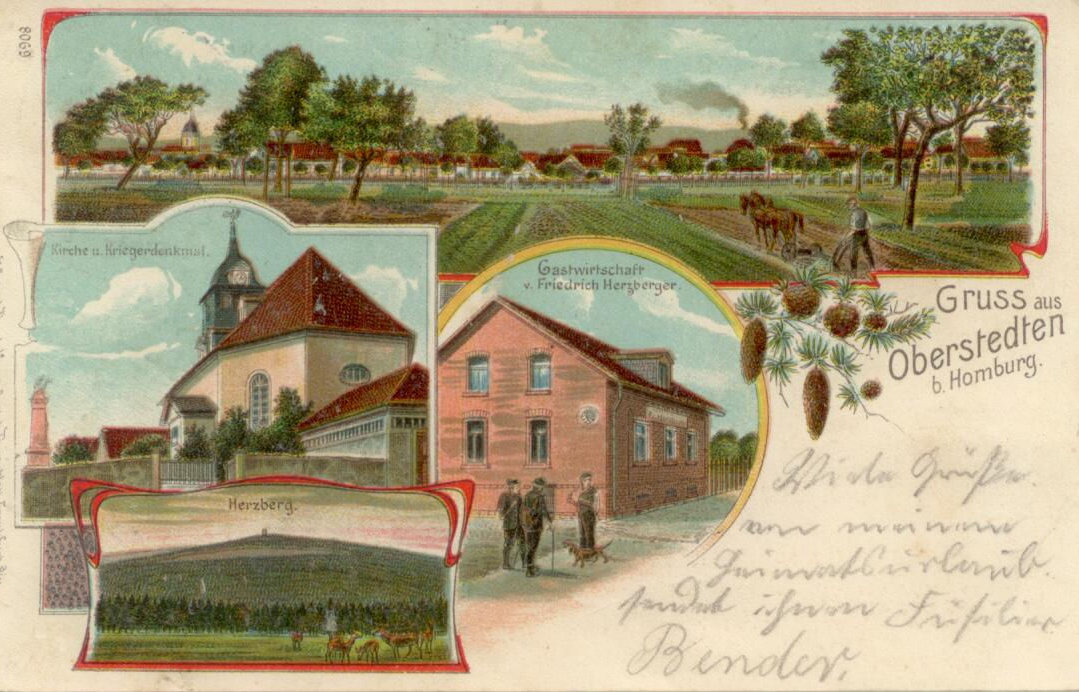 8069
Kirche u. Kriegerdenkmal.
Gastwirtschaft
v. Friedrich Herzberger.
Gruss aus
Oberstedten
b. Homburg.
Herzberg.
Viele Grüße
von meinem
Heimatsurlaub.
sendet ihnen Füsilier
Bender.